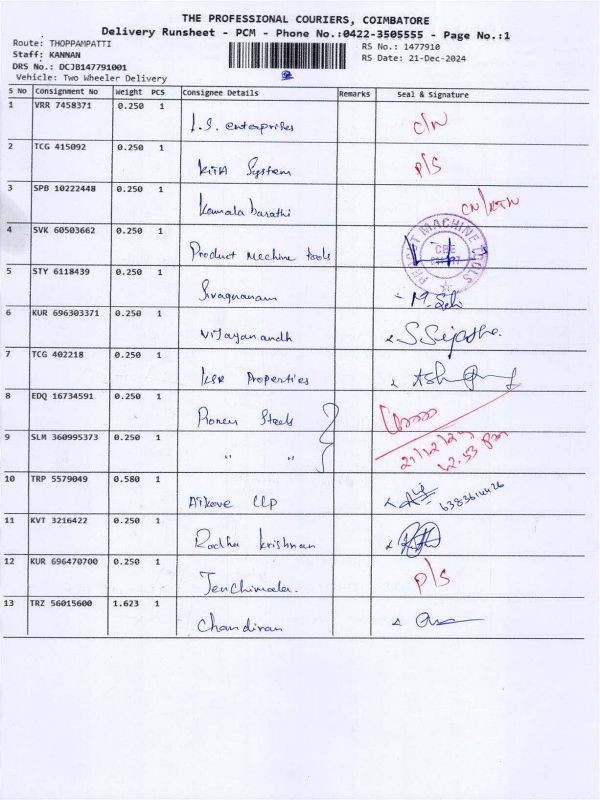 THE PROFESSIONAL COURIERS, COIMBATORE
Delivery Runsheet - PCM - Phone No.:0422-3505555 - Page No.:1
Route: THOPPAMPATTI
Staff: KANNAN
DRS No.: DCJB147791001
Vehicle: Two Wheeler Delivery
RS No.: 1477910
RS Date: 21-Dec-2024
S No Consignment No Weight PCS Consignee Details Remarks Seal & Signature
1 VRR 7458371 0.250 1 I.S. enterprises C/N
2 TCG 415092 0.250 1 KITA System P/S
3 SPB 10222448 0.250 1 Kamala barathi CN/RTN
4 SVK 60503662 0.250 1 Product Mechine tools
PRODUCT MACHINE TOOLS
CBE
5 STY 6118439 0.250 1 Sivagnanam
6 KUR 696303371 0.250 1 Vijayanandh
7 TCG 402218 0.250 1 KSR Properties
8 EDQ 16734591 0.250 1 Pioneer Steels
9 SLM 360995373 0.250 1 " " 21/12/24
12.53 pm
10 TRP 5579049 0.580 1 Aikove LLP 6383614426
11 KVT 3216422 0.250 1 Radha Krishnan
12 KUR 696470700 0.250 1 Tenchimala. P/S
13 TRZ 56015600 1.623 1 Chandiran